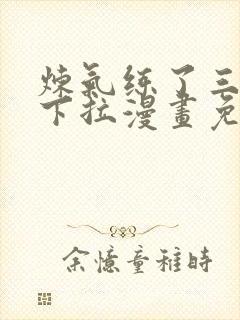 煉氣練了三
下拉漫畫免
余憶童稚時